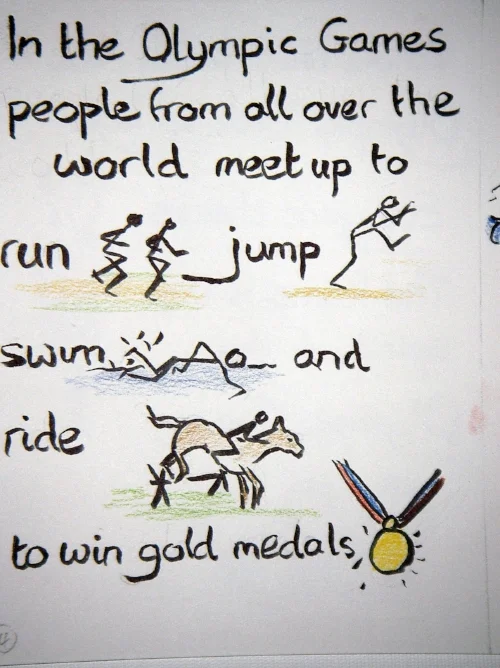 In the Olympic Games
people from all over the
world meet up to
run jump
swim and
ride
to win gold medals